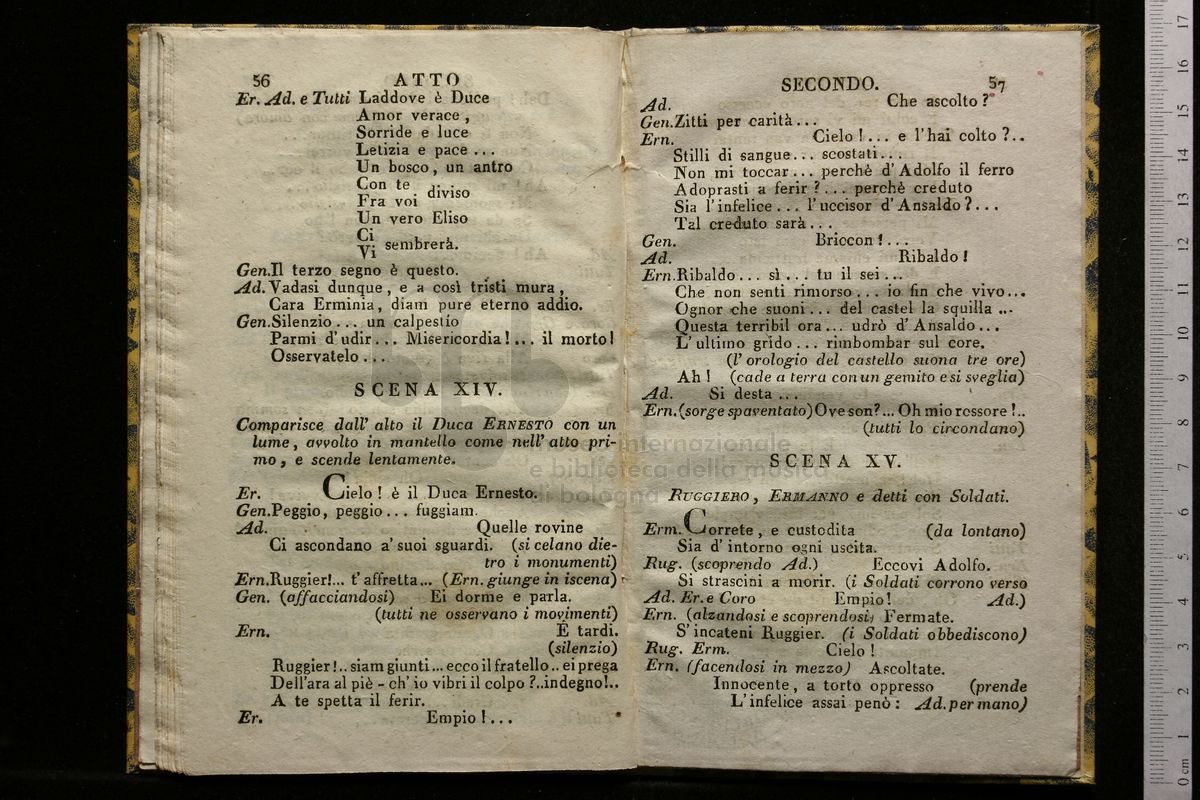 56 ATTO
Er. Ad. e Tutti Laddove è Duce
Amor verace,
Sorride e luce
Letizia e pace...
Un bosco, un antro
Con te
Fra voi diviso
Un vero Eliso
Ci
Vi sembrerà.
Gen. Il terzo segno è questo.
Ad. Vadasi dunque, e a così tristi mura,
Cara Erminia, diam pure eterno addio.
Gen. Silenzio... un calpestìo
Parmi d'udir... Misericordia!... il morto!
Osservatelo...
SCENA XIV.
Comparisce dall' alto il Duca ERNESTO con un
lume, avvolto in mantello come nell' atto pri-
mo, e scende lentamente.
Er. Cielo! è il Duca Ernesto.
Gen. Peggio, peggio... fuggiam.
Ad. Quelle rovine
Ci ascondano a' suoi sguardi. (si celano die-
tro i monumenti)
Ern. Ruggier!... t'affretta... (Ern. giunge in iscena)
Gen. (affacciandosi) Ei dorme e parla.
(tutti ne osservano i movimenti)
Ern. È tardi.
(silenzio)
Ruggier!.. siam giunti... ecco il fratello.. ei prega
Dell'ara al piè - ch' io vibri il colpo?..indegno!..
A te spetta il ferir.
Er. Empio!...
SECONDO. 57
Ad. Che ascolto?
Gen. Zitti per carità...
Ern. Cielo!... e l'hai colto?..
Stilli di sangue... scostati...
Non mi toccar... perchè d'Adolfo il ferro
Adoprasti a ferir?... perchè creduto
Sia l'infelice... l'uccisor d'Ansaldo?...
Tal creduto sarà...
Gen. Briccon!...
Ad. Ribaldo!
Ern. Ribaldo... sì... tu il sei...
Che non senti rimorso... io fin che vivo...
Ognor che suoni... del castel la squilla...
Questa terribil ora... udrò d'Ansaldo...
L'ultimo grido... rimbombar sul core.
(l' orologio del castello suona tre ore)
Ah! (cade a terra con un gemito e si sveglia)
Ad. Si desta...
Ern. (sorge spaventato) Ove son?... Oh mio rossore!..
(tutti lo circondano)
SCENA XV.
RUGGIERO, ERMANNO e detti con Soldati.
Erm. Correte, e custodita (da lontano)
Sia d'intorno ogni uscita.
Rug. (scoprendo Ad.) Eccovi Adolfo.
Si strascini a morir. (i Soldati corrono verso
Ad. Er. e Coro Empio! Ad.)
Ern. (alzandosi e scoprendosi) Fermate.
S'incateni Ruggier. (i Soldati obbediscono)
Rug. Erm. Cielo!
Ern. (facendosi in mezzo) Ascoltate.
Innocente, a torto oppresso (prende
L'infelice assai penò: Ad. per mano)
museo internazionale
e biblioteca della musica
di bologna
0 cm 1 2 3 4 5 6 7 8 9 10 11 12 13 14 15 16 17